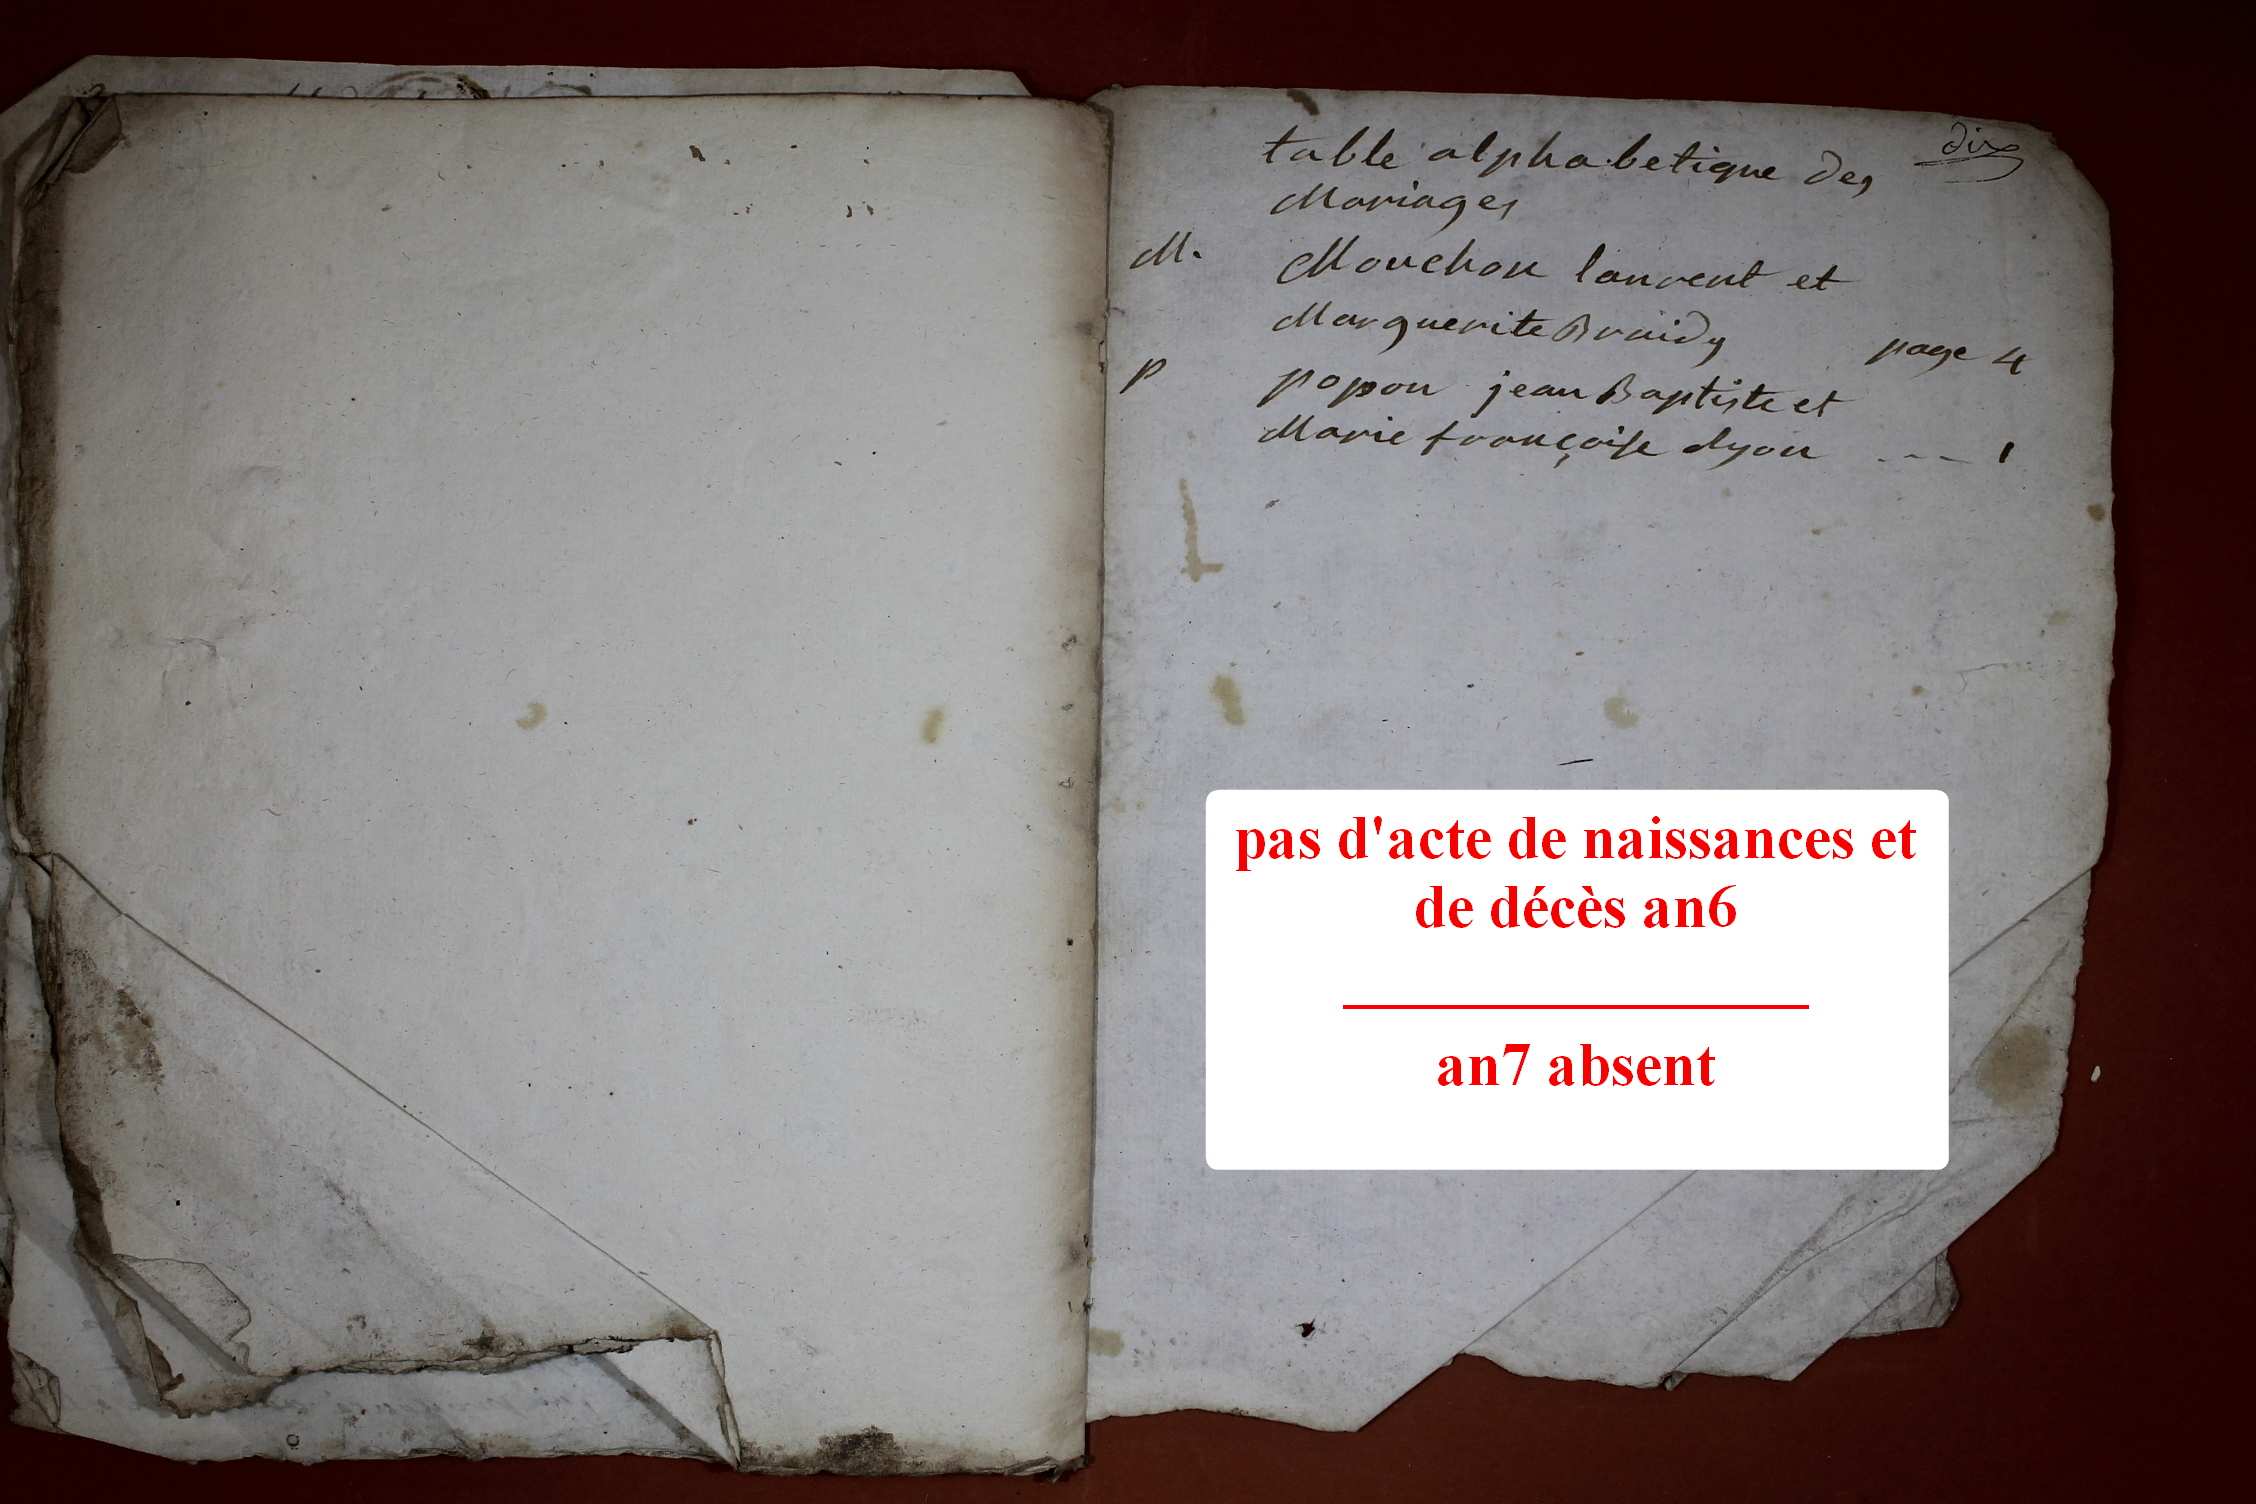 dix
table alphabetique des
Mariages
M. Mouchon laurent et
Marguerite Braidy page 4
p popon jean Baptiste et
Marie françoise dyon --- 1
pas d'acte de naissances et
de décès an6
an7 absent